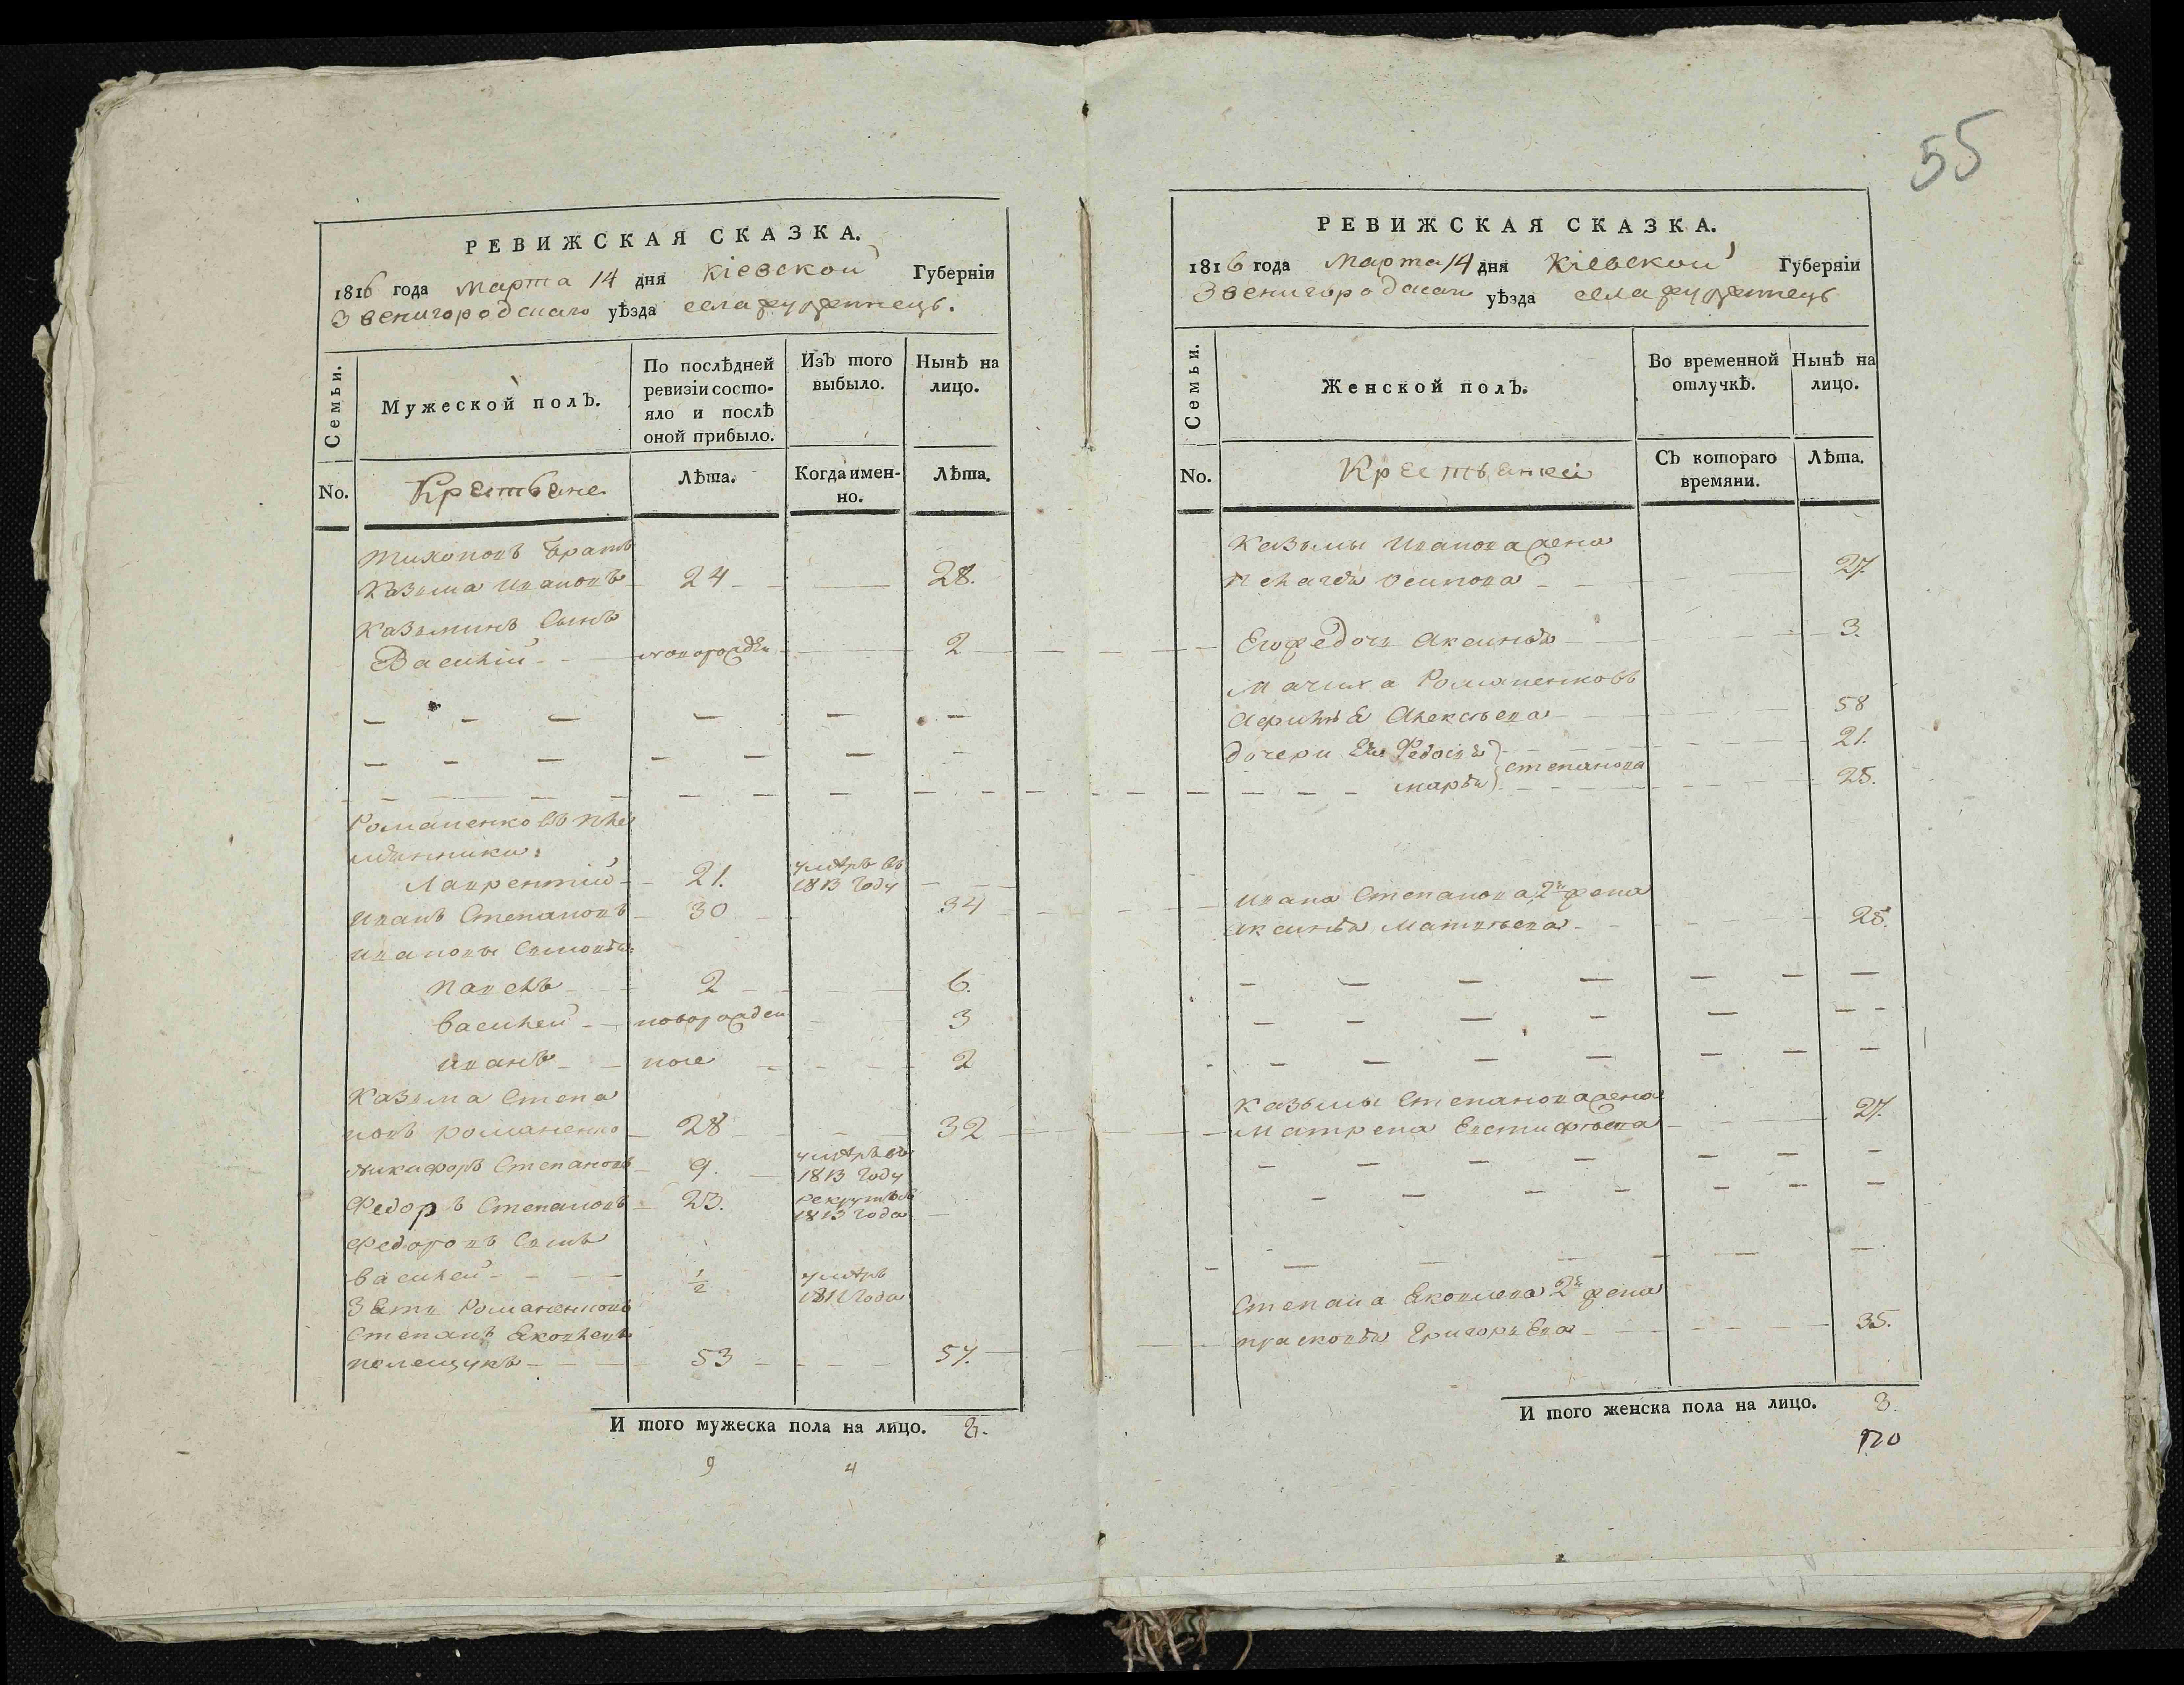 55
РЕВИЖСКАЯ СКАЗКА.
1816 года Марта 14 дня Кіевской Губерніи
Звенигородскаго уѣзда села
Семьи.
Мужеской полЪ.
По послѣдней
ревизіи состо-
яло и послѣ
оной прибыло.
ИзЪ того
выбыло.
Нынѣ на
лицо.
No.
Крестьяне
Лѣта.
Когда имен-
но.
Лѣта.
Тихоновъ братъ
Казьма Ивановъ 24 28.
Казьминъ Сынъ
Василій новорожден 2
Романенковъ пле
мянники:
Лаврентий 21. умѣръ въ
1813 году
Иванъ Степановъ 30 34
Ивановы Сыновья:
Павелъ 2 6.
Василей новорожден 3
Иванъ ные 2
Казьма Степа
новъ Романенко 28 32
Никифоръ Степановъ 9. умѣръ въ
1813 году
Федоръ Степановъ 23. рекрутъ
1813 года
Федоровъ Сынъ
Василей 1/2 умѣръ
1811 года
Зять Романенковъ
Степанъ Яковлевъ
Полещукъ 53 57.
И того мужеска пола на лицо. 8.
9 4
РЕВИЖСКАЯ СКАЗКА.
1816 года Марта 14 дня Кіевской Губерніи
Звенигородскаго уѣзда села
Семьи.
Женской полЪ.
Во временной
отлучкѣ.
Нынѣ на
лицо.
No.
Крестьянки
СЪ котораго
времяни.
Лѣта.
Казьмы Иванова жена
Пелагѣя Осипова 27.
Егоже дочь Аксинья 3.
Мачиха Романенковъ
Алексѣева 58
дочери Ея Федосья 21.
Степанова
Марья 25.
Ивана Степанова 2я жена
Аксинья Матвѣева 28.
Казьмы Степанова жена
Матрена Евстифѣева 27.
Степана Яковлева 2я жена
Прасковья Григорьева 35.
И того женска пола на лицо. 8.